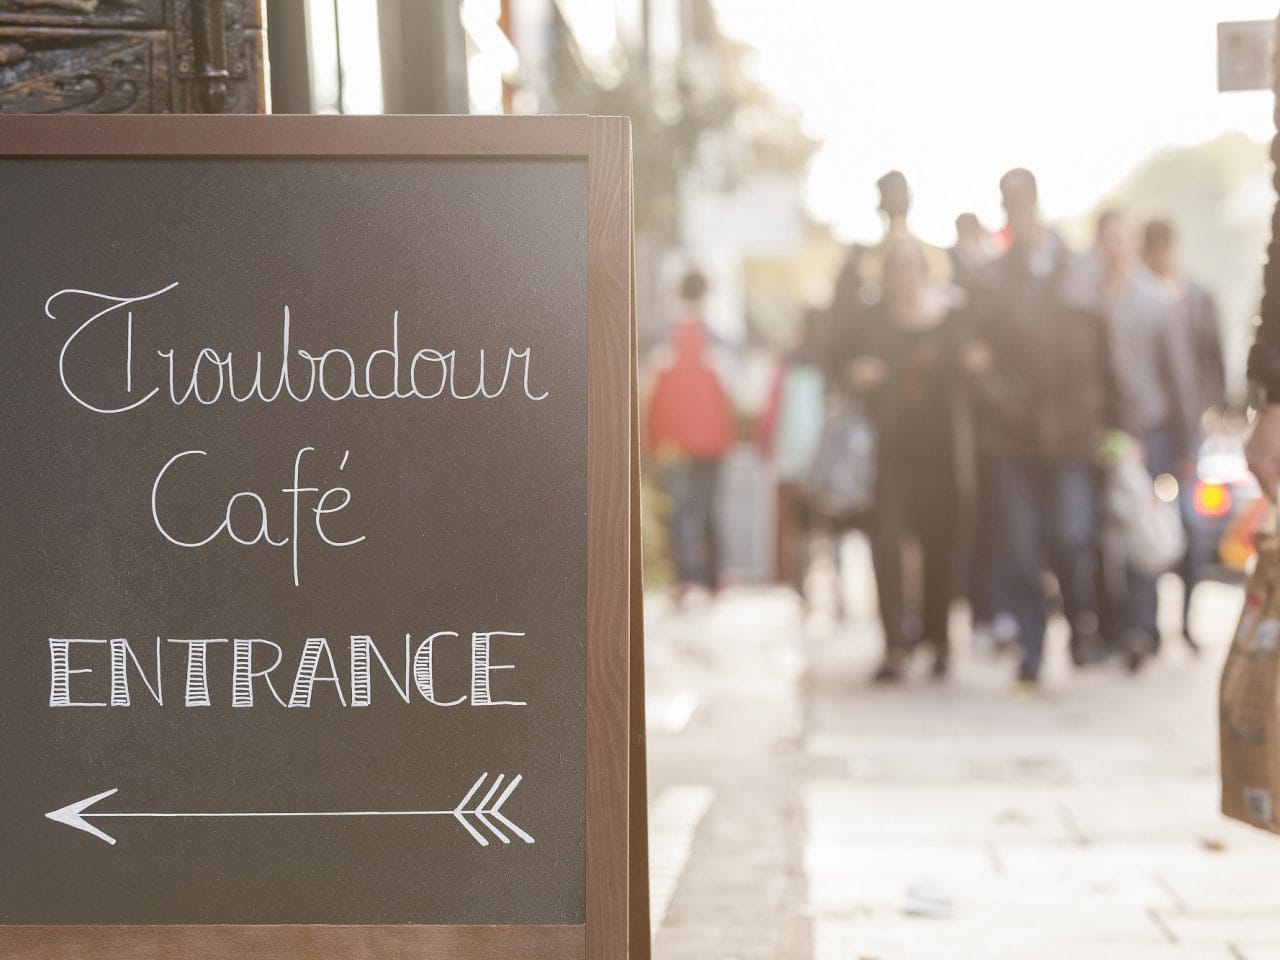 Troubadour
Café
ENTRANCE